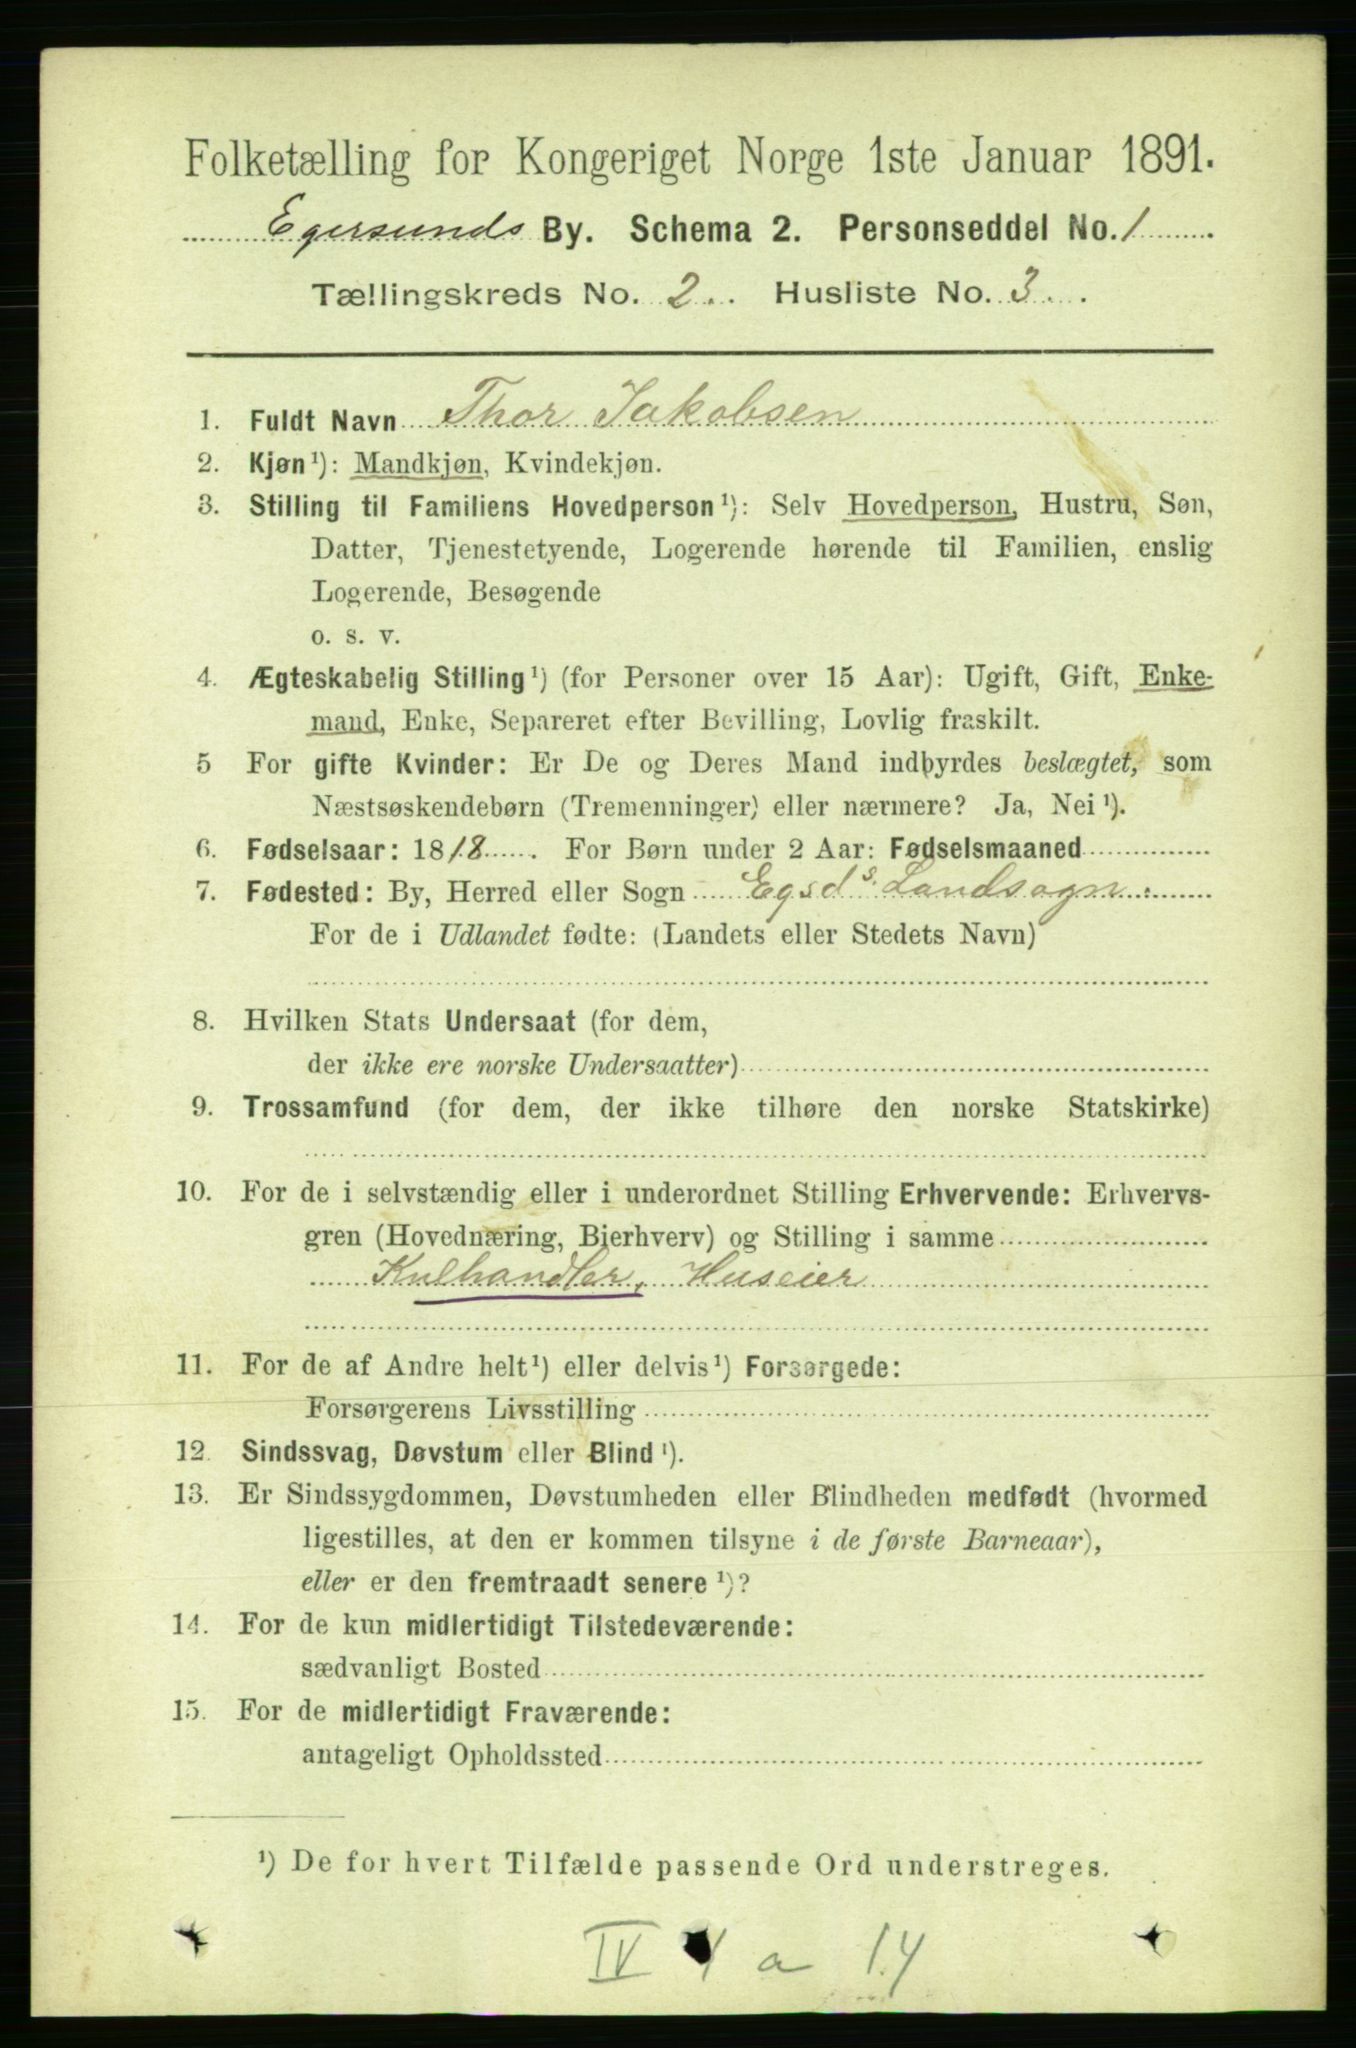 Folketælling for Kongeriget Norge 1ste Januar 1891.
Egersunds By. Schema 2. Personseddel No. 1
Tællingskreds No. 2. Husliste No. 3.
1. Fuldt Navn Thor Jakobsen
2. Kjøn¹): Mandkjøn, Kvindekjøn.
3. Stilling til Familiens Hovedperson¹): Selv Hovedperson, Hustru, Søn,
Datter, Tjenestetyende, Logerende hørende til Familien, enslig
Logerende, Besøgende
o. s. v.
4. Ægteskabelig Stilling¹) (for Personer over 15 Aar): Ugift, Gift, Enke-
mand, Enke, Separeret efter Bevilling, Lovlig fraskilt.
5 For gifte Kvinder: Er De og Deres Mand indbyrdes beslægtet, som
Næstsøskendebørn (Tremenninger) eller nærmere? Ja, Nei¹).
6. Fødselsaar: 1818. For Børn under 2 Aar: Fødselsmaaned
7. Fødested: By, Herred eller Sogn Egsds. Landsogn.
For de i Udlandet fødte: (Landets eller Stedets Navn)
8. Hvilken Stats Undersaat (for dem,
der ikke ere norske Undersaatter)
9. Trossamfund (for dem, der ikke tilhøre den norske Statskirke)
10. For de i selvstændig eller i underordnet Stilling Erhvervende: Erhvervs-
gren (Hovednæring, Bierhverv) og Stilling i samme
Kulhandler, Huseier
11. For de af Andre helt¹) eller delvis¹) Forsørgede:
Forsørgerens Livsstilling
12. Sindssvag, Døvstum eller Blind¹).
13. Er Sindssygdommen, Døvstumheden eller Blindheden medfødt (hvormed
ligestilles, at den er kommen tilsyne i de første Barneaar),
eller er den fremtraadt senere¹)?
14. For de kun midlertidigt Tilstedeværende:
sædvanligt Bosted
15. For de midlertidigt Fraværende:
antageligt Opholdssted
¹) De for hvert Tilfælde passende Ord understreges.
IV a 14